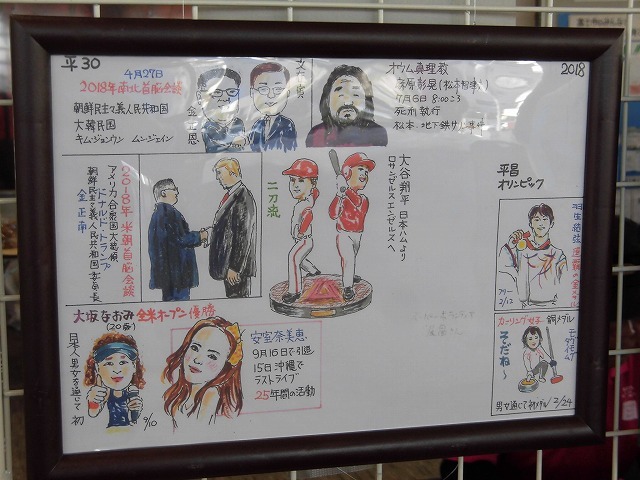 平30
2018
4月27日
2018年南北首脳会談
朝鮮民主主義人民共和国
大韓民国
キム・ジョンウン ムン・ジェイン
金正恩
文在寅
オウム真理教
麻原彰晃(松本智津夫)
7月6日 8:00ころ
死刑執行
松本・地下鉄サリン事件
2018年 米朝首脳会談
アメリカ合衆国大統領
ドナルド・トランプ
朝鮮民主主義人民共和国委員長
二刀流
大谷翔平 日本ハムより
ロサンゼルスエンゼルスへ
平昌
オリンピック
羽生結弦
2/17
カーリング女子 銅メダル
そだね〜
男女通じて初メダル 2/24
大坂なおみ 全米オープン優勝
(20歳)
日本人男女を通じて
初
9/10
安室奈美恵
9月16日で引退
15日沖縄で
ラストライブ
25年間の活動